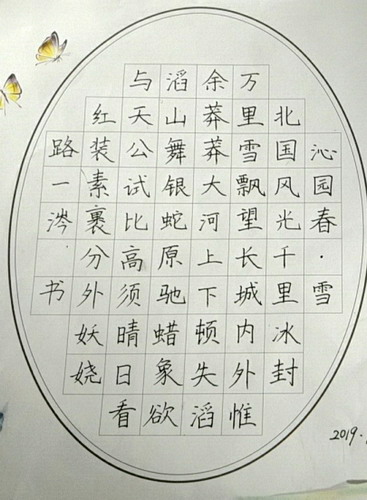 沁园春·雪
北国风光千里冰封
万里雪飘望长城内外惟
余莽莽大河上下顿失滔
滔山舞银蛇原驰蜡象欲
与天公试比高须晴日看
红装素裹分外妖娆
路一涔·书
2019.